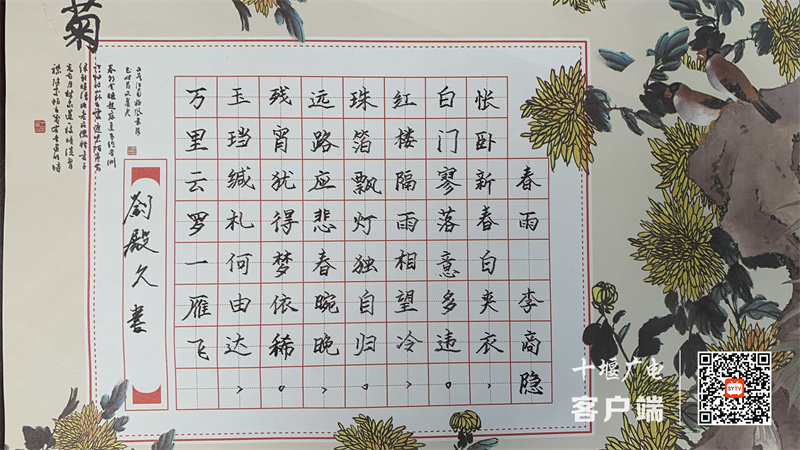 菊
春雨 李商隐
怅卧新春白夹衣，
白门寥落意多违。
红楼隔雨相望冷，
珠箔飘灯独自归。
远路应悲春晼晚，
残宵犹得梦依稀。
玉珰缄札何由达，
万里云罗一雁飞
劉殿久 書
十堰广电
客户端
SYTV